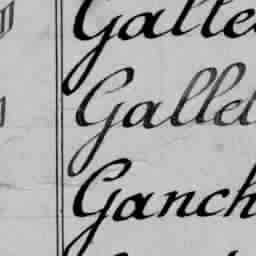 Galle
Gallel
Ganch